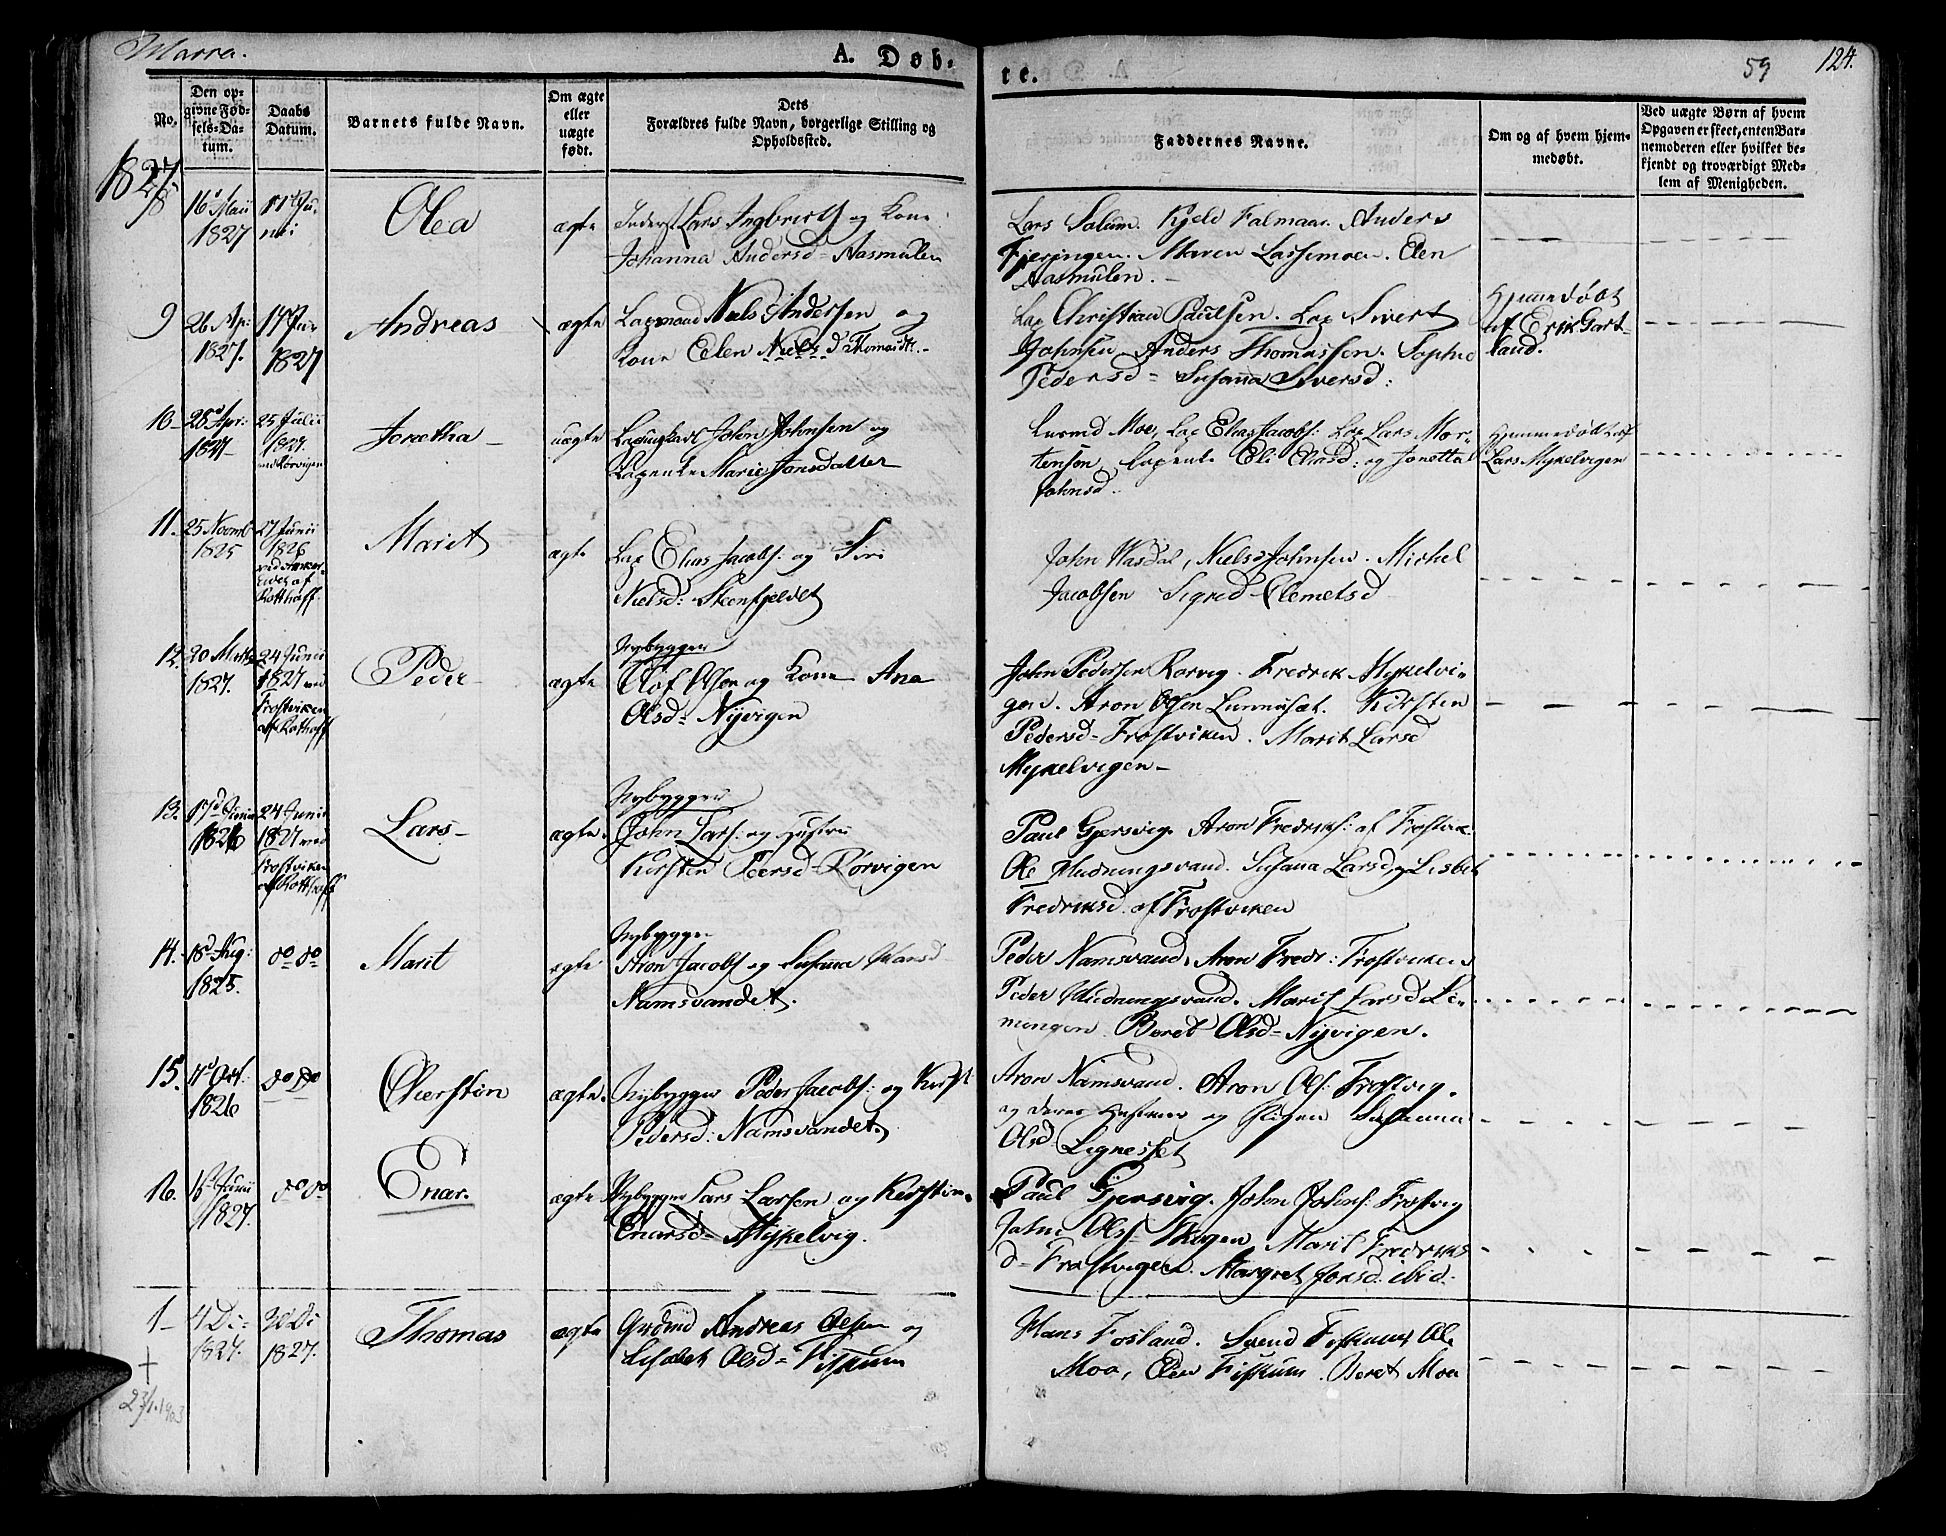 Marra.
A. Døb-
te.
59
124.
No.
Den op-
givne Fød-
sels-Da-
tum.
Daabs
Datum.
Barnets fulde Navn.
Om ægte
eller
uægte
født.
Dets
Forældres fulde Navn, borgerlige Stilling og
Opholdssted.
Faddernes Navne.
Om og af hvem hjem-
medøbt.
Ved uægte Børn af hvem
Opgaven er skeet, enten Bar-
nemoderen eller hvilket be-
kjendt og troværdigt Med-
lem af Menigheden.
1827.
8
16 Maii
1827
Ju-
nii
Olea
ægte
Inderst Lars Ingbrects og Kone
Johanna Andersd= Aasmulen
Lars Solum. Kjeld Falmaar. Anders
Fjeringen. Maren Lassemoen. Elen
Aasmulen.
9
26 Ap:
1827.
17 Jun
1827
Andreas
ægte
Lapmand Niels Andersen og
Kone Elen Niels d Thomasdtr.
Lap Christian Paulsen. Lap Sivert
Johnsen Anders Thomassen. Sophie
Pedersd= Susanna Siversd:
Hjemmedøbt
af Erik Gart-
land.
10
28 Apr:
1827
25 Julii
1827.
ved Rørvigen
Joretha
uægte
Lapungkarl John Johnsen og
Lapente Marie Jonsdatter
Moe, Lap Elias Jacobs: Lap Lars Mor-
tensen, Lapente Eli Eliasd: og Jonetta
Johnsd.
Hjemmedøbt af
Lars Mykelvigen
11.
25 Novemb
1825
27 Junii
1826
ved
af
Rotthoff.
Marit
ægte
Lap Elias Jacobs: og Siri
Nielsd: Steenfjeldet
John Hasdal, Niels Johnsen. Michel
Jacobsen Sigrid Clemetsd
12.
20 Marts
1827.
24 Junii
1827 ved
Frostviken
af Rothoff
Peder
ægte
Nybygger
Olof Olsen og Kone Ana
Olsd= Nyvigen
John Pedersen Rorvig. Fredrik Mykelvi-
gen. Aron Olsen Lunnuset. Kirsten
Pedersd= Frostviken. Marit Larsd
Mykelvigen
13.
17d Junii
1826
24 Junii
1827 ved
Frostviken
af Rotthoff
Lars
ægte.
Nybygger
John Lars: og Hustru
Kirsten Peersd= Rørvigen
Paul Gjersvig. Aron Fredriks: af Frostvik.
Ole Mudningsvand. Susana Larsd, Lisbet
Fredriksd. af Frostviken
14.
18d Aug:
1825.
do do
Marit
ægte
Nybygger
Aron Jacobs og Susanna Hansd
Namsvandet.
Peder Namsvand, Aron Fredr: Frostviken
Peder Mudningsvand. Marit Larsd Le-
ningen Beret Olsd= Nyvigen.
15.
Oct.
1826
do do
Chierstin
ægte.
Nybygger Peder Jacobs: og Kirst
Pedersd: Namsvandet.
Aron Namsvand. Aron Ols: Frostvig.
og deres Hustruer og Pigen Susanna
Olsd= Lignesset
16.
16 Junii
1827.
do do
Enar.
ægte
Nybygger Lars Larsen og Kierstin
Enarsd= Mykelvig.
Paul Gjersvig. John Johns: Frostvig
John Ols Skogen Marit Fredriks
d= Frostvigen. Margret Jonsd. ibid.
1
4 De-
1827.
30 De
1827.
Thomas
ægte
Grdmd Andreas Olsen og
Lisabeth Olsd= Fiskum
Hans Fosland. Svend Fiskum Ole
Moa, Elen Fiskum. Beret Moa
†
23/1.1903